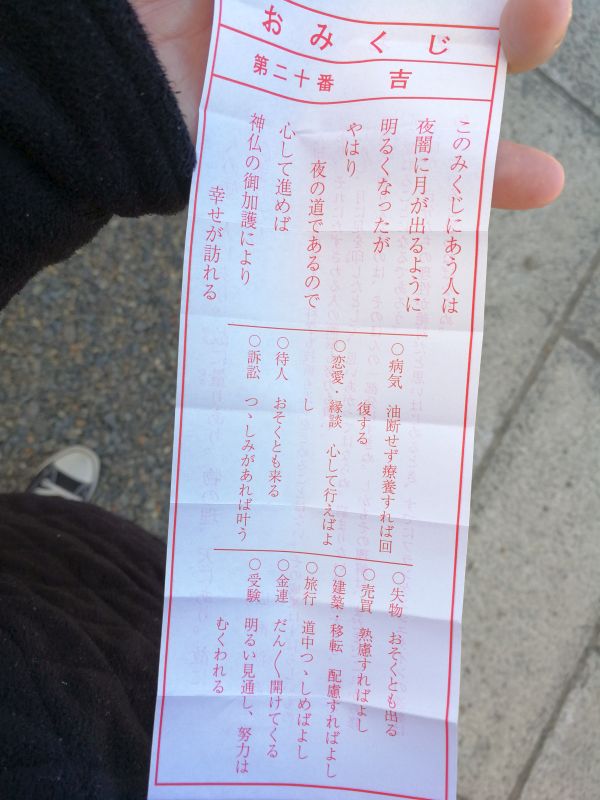 おみくじ
第二十番 吉
このみくじにあう人は
夜闇に月が出るように
明るくなったが
やはり
夜の道であるので
心して進めば
神仏の御加護により
幸せが訪れる
○病気 油断せず療養すれば回
復する
○恋愛・縁談 心して行えばよ
し
○待人 おそくとも来る
○訴訟 つゝしみがあれば叶う
○失物 おそくとも出る
○売買 熟慮すればよし
○建築・移転 配慮すればよし
○旅行 道中つゝしめばよし
○金運 だん〳〵開けてくる
○受験 明るい見通し、努力は
むくわれる